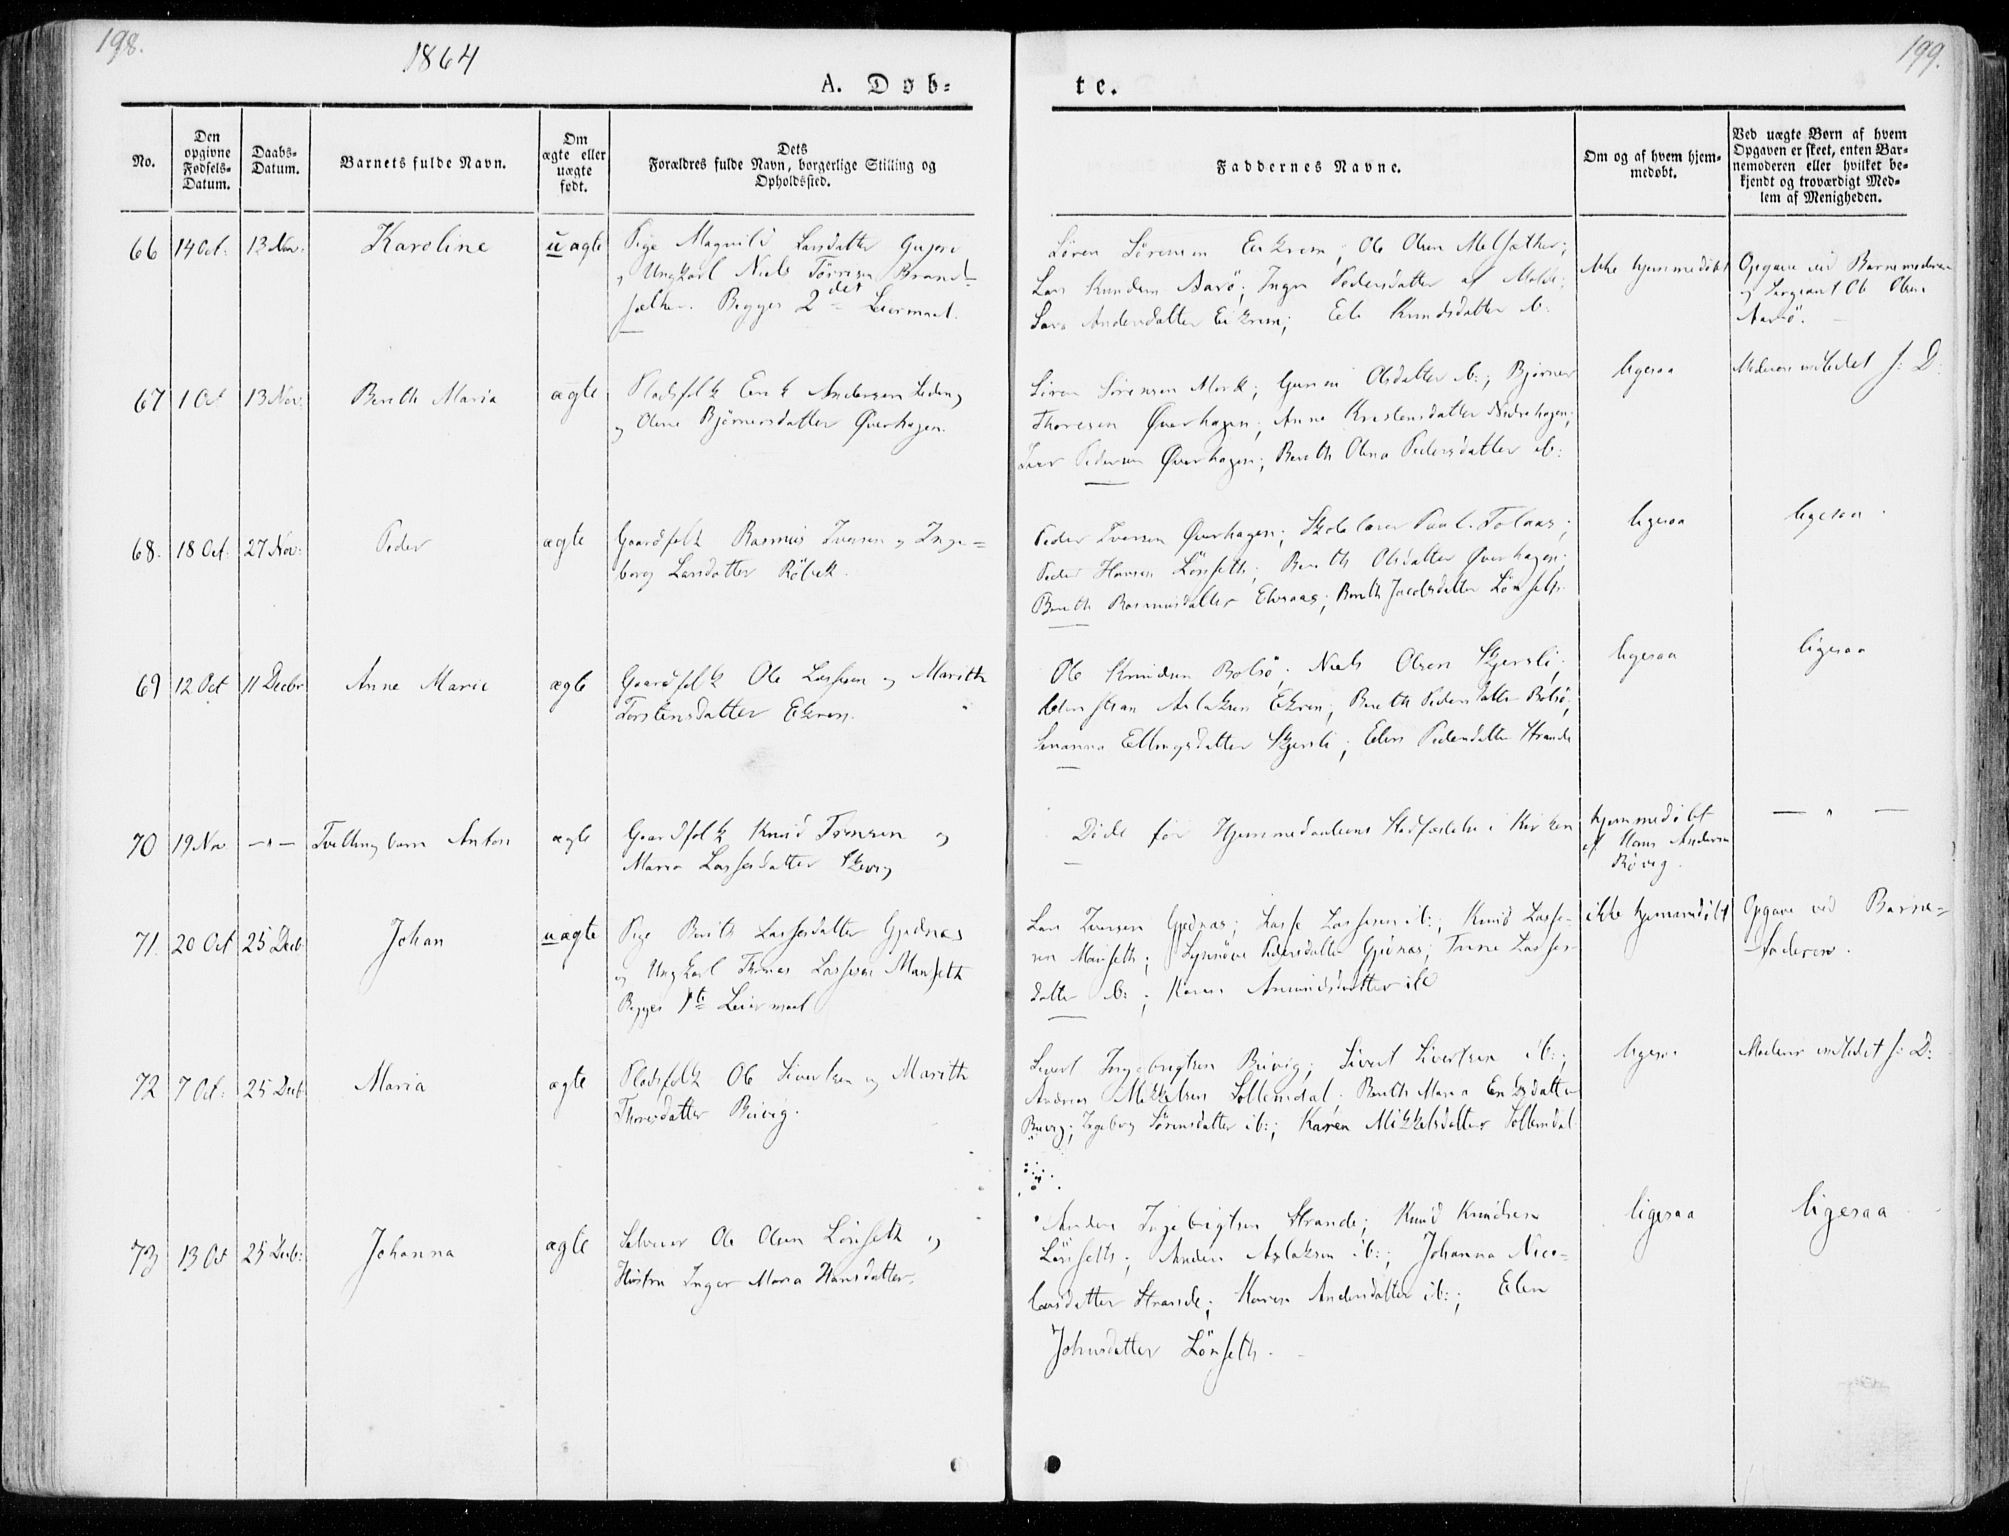 198.
1864
A. Døb-
te.
199.
No.
Den opgivne Fødsels-Datum.
Daabs-Datum.
Barnets fulde Navn.
Om ægte eller uægte født.
Dets Forældres fulde Navn, borgerlige Stilling og Opholdssted.
Faddernes Navne.
Om og af hvem hjem-medøbt.
Ved uægte Børn af hvem Opgaven er skeet, enten Bar-nemoderen eller hvilket be-kjendt og troværdigt Med-lem af Menigheden.
66 14 Oct: 13 Nov: Karoline uægte
Pige Magnild Larsdatter
og Ungkarl Niels
Begges 2det Leiermaal.
Sören Sörensen Eikrem; Ole Olsen Melsæther;
Lars Knudsen Aarö; Inger Pedersdatter af Molde;
Andersdatter Eikrem; Eli Knudsdatter ib:
ikke hjemmedöbt
Opgave ved Barnemoderen
og Sergeant Ole Olsen
Aarö.
67 1 Oct 13 Nov: Berith Maria ægte
Pladsfolk Erik Andersen
og Olene Bjørnersdatter Øverhagen.
Sören Sörensen Mork; Olsdatter ib:; Bjørner
Thoresen Øverhagen; Anne Kristensdatter Nedrehagen;
Iver Pedersen Øverhagen; Berith Olina Pedersdatter ib:
ligesaa
Moderen indledet f: D:
68. 18 Oct: 27 Nov: Peder ægte
Gaardfolk Rasmus Iversen og Inge=
borg Larsdatter Röbek.
Peder Iversen Øverhagen; Skolelærer Paul Tolaas;
Peder Hansen Lönseth; Berith Olsdatter Øverhagen;
Berith Rasmusdatter Elvsaas; Berith Jacobsdatter Lönseth.
ligesaa
ligesaa
69 12 Oct 11 Decbr Anne Marie ægte
Gaardfolk Ole Lassesen og Marith
Torstensdatter Ekrem.
Ole Knudsen Bolsö; Niels Olsen Skjersli;
Aslaksen Ekrem; Berith Pedersdatter Bolsö;
Ellingsdatter Skjersli; Elen Pedersdatter Strande
ligesaa
ligesaa
70 19 Nov — " — Tvillingbarn Anton ægte
Gaardfolk Knud og
Maria Lassesdatter
Döde før Hjemmedaabens Stadfæstelse i Kirken
hjemmedöbt
af Hans Andersen
Rövig.
— " —
71. 20 Oct 25 Decb Johan uægte
Pige Berith Lassesdatter Gjednæs
og Ungkarl Thomas Lassesen Manseth
Begges 1ste Leiermaal
Lars Iversen Gjednæs; Lasse Lassesen ib:; Knud Lasse-
sen Manseth; Synnöve Pedersdatter Gjednæs; Trine Lasses-
datter ib:; Karen Amundsdatter ibd
ikke hjemmedöbt
Opgave ved Barne=
faderen.
72 7 Oct: 25 Decb Maria ægte
Pladsfolk Ole Sivertsen og Marith
Thoresdatter Buvig.
Sivert Ingebrigtsen Buvig; Sivert Sivertsen ib:;
Andreas Mikkelsen Sollemdal; Berith Maria Eriksdatter
Buvig; Ingeborg Sörensdatter ib:; Karen Mikkelsdatter Sollemdal
ligesaa
Moderen indledet f: D:
73 13 Oct 25 Decb: Johanna ægte
Selveier Ole Olsen Lönseth og
Hustru Inger Maria Hansdatter.
Anders Ingebrigtsen Strande; Knud Knudsen
Lönseth; Anders Aslaksen ib:; Johanna Nico-
laisdatter Strande; Karen Andersdatter ib:; Elen
Johnsdatter Lönseth.
ligesaa
ligesaa